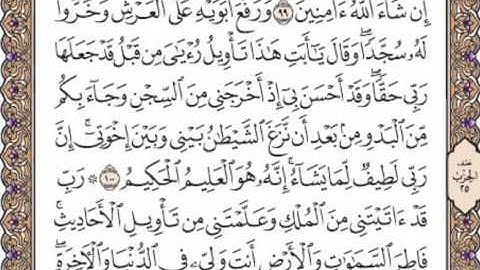 إِن شَآءَ ٱللَّهُ ءَامِنِينَ ۝٩٩ وَرَفَعَ أَبَوَيۡهِ عَلَى ٱلۡعَرۡشِ وَخَرُّواْ
لَهُۥ سُجَّدٗاۖ وَقَالَ يَٰٓأَبَتِ هَٰذَا تَأۡوِيلُ رُءۡيَٰيَ مِن قَبۡلُ قَدۡ جَعَلَهَا
رَبِّي حَقّٗاۖ وَقَدۡ أَحۡسَنَ بِيٓ إِذۡ أَخۡرَجَنِي مِنَ ٱلسِّجۡنِ وَجَآءَ بِكُم
مِّنَ ٱلۡبَدۡوِ مِنۢ بَعۡدِ أَن نَّزَغَ ٱلشَّيۡطَٰنُ بَيۡنِي وَبَيۡنَ إِخۡوَتِيٓۚ إِنَّ
رَبِّي لَطِيفٞ لِّمَا يَشَآءُۚ إِنَّهُۥ هُوَ ٱلۡعَلِيمُ ٱلۡحَكِيمُ ۝١٠٠ ۞ رَبِّ
قَدۡ ءَاتَيۡتَنِي مِنَ ٱلۡمُلۡكِ وَعَلَّمۡتَنِي مِن تَأۡوِيلِ ٱلۡأَحَادِيثِۚ
فَاطِرَ ٱلسَّمَٰوَٰتِ وَٱلۡأَرۡضِ أَنتَ وَلِيِّۦ فِي ٱلدُّنۡيَا وَٱلۡأٓخِرَةِۖ
نصف
الحزب
٢٥